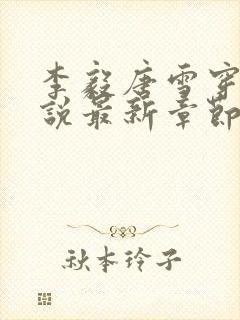 李毅唐雪穿
说最新章节
秋本玲子